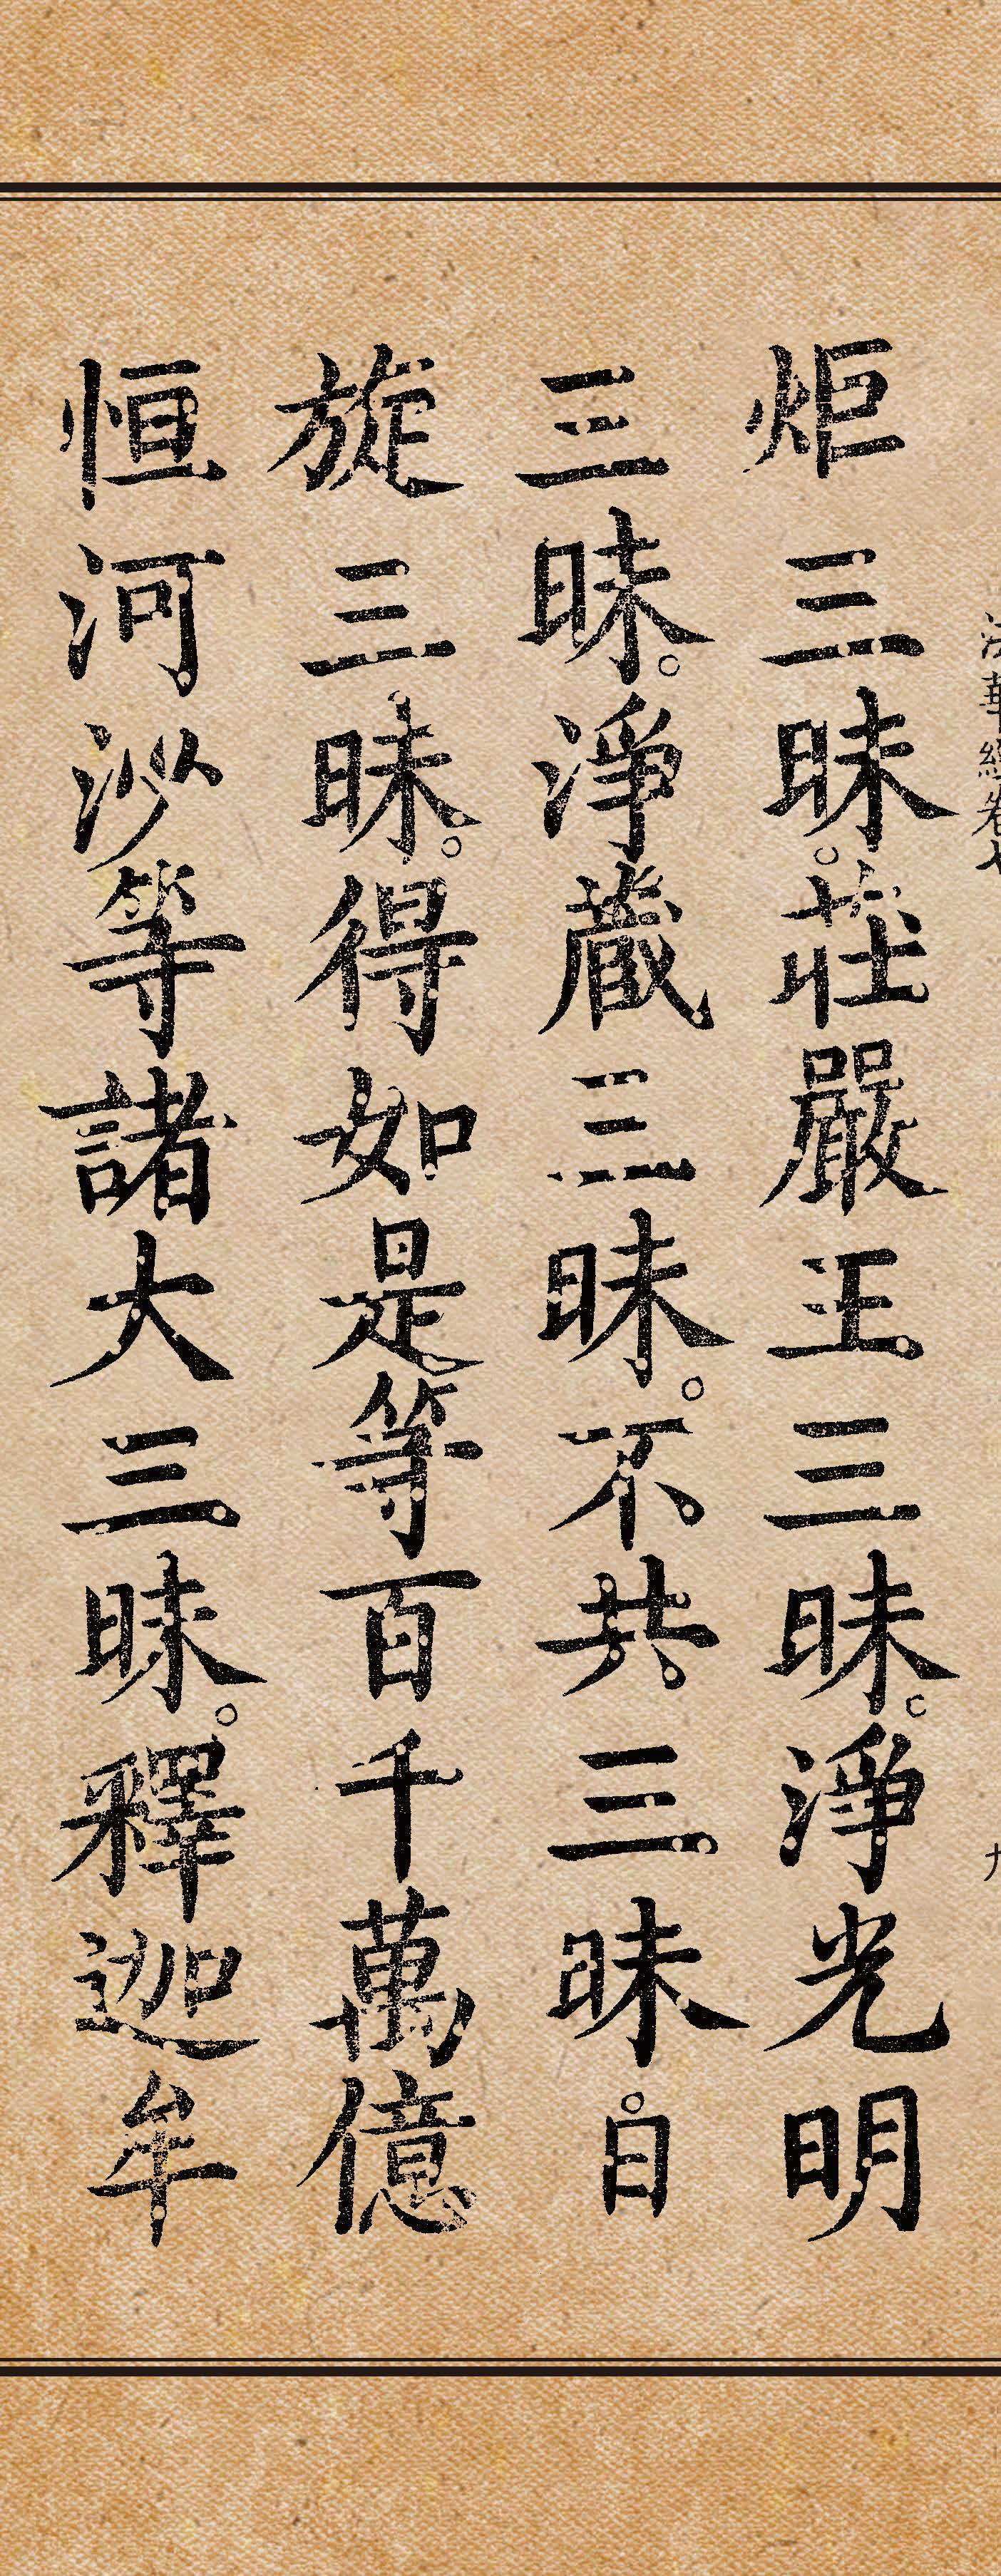 法華經卷七
九
炬三昧。莊嚴王三昧。淨光明
三昧。淨藏三昧。不共三昧。日
旋三昧。得如是等百千萬億
恒河沙等諸大三昧。釋迦牟